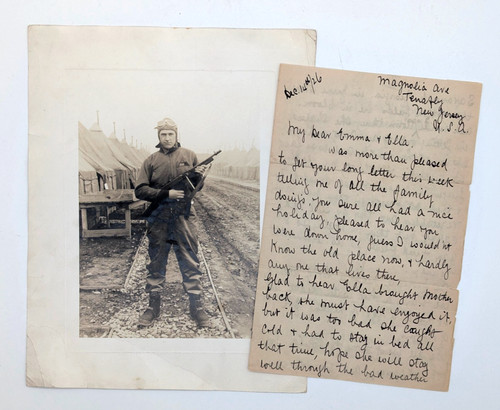 Magnolia Ave
Dec. 14th/26
Tenafly
New Jersey
U. S. A.
My Dear Emma & Ella
was more than pleased
to get your long letter this week
telling me of all the family
doings. You sure all had a nice
holiday, pleased to hear you
were down home, guess I would n't
know the old place now, & hardly
any one that lives there,
Glad to hear Ella brought Mother
back, she must have enjoyed it,
but it was too bad she caught
cold & had to stay in bed all
that time, hope she will stay
well through the bad weather